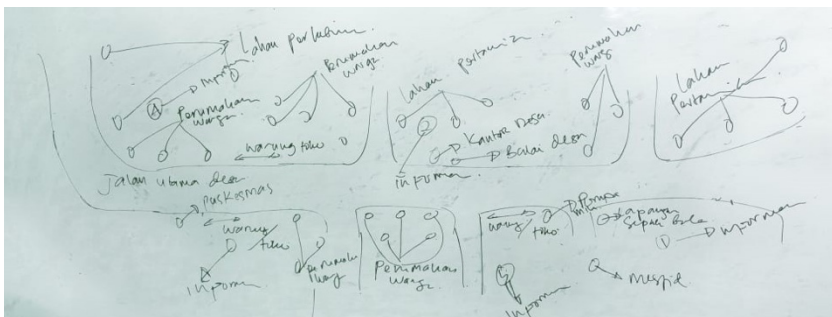 Lahan Pertanian
Informan
Perumahan
warga
Perumahan
warga
warung/toko
Lahan pertanian
Perumahan
warg
Kantor Desa
Balai desa
informan
Lahan
Pertanian
Jalan utama desa
Puskesmas
warung
/toko
informan
Perumahan
warg
Perumahan
warga
warung
/toko
informan
Lapangan
Sepak bola
Informan
masjid